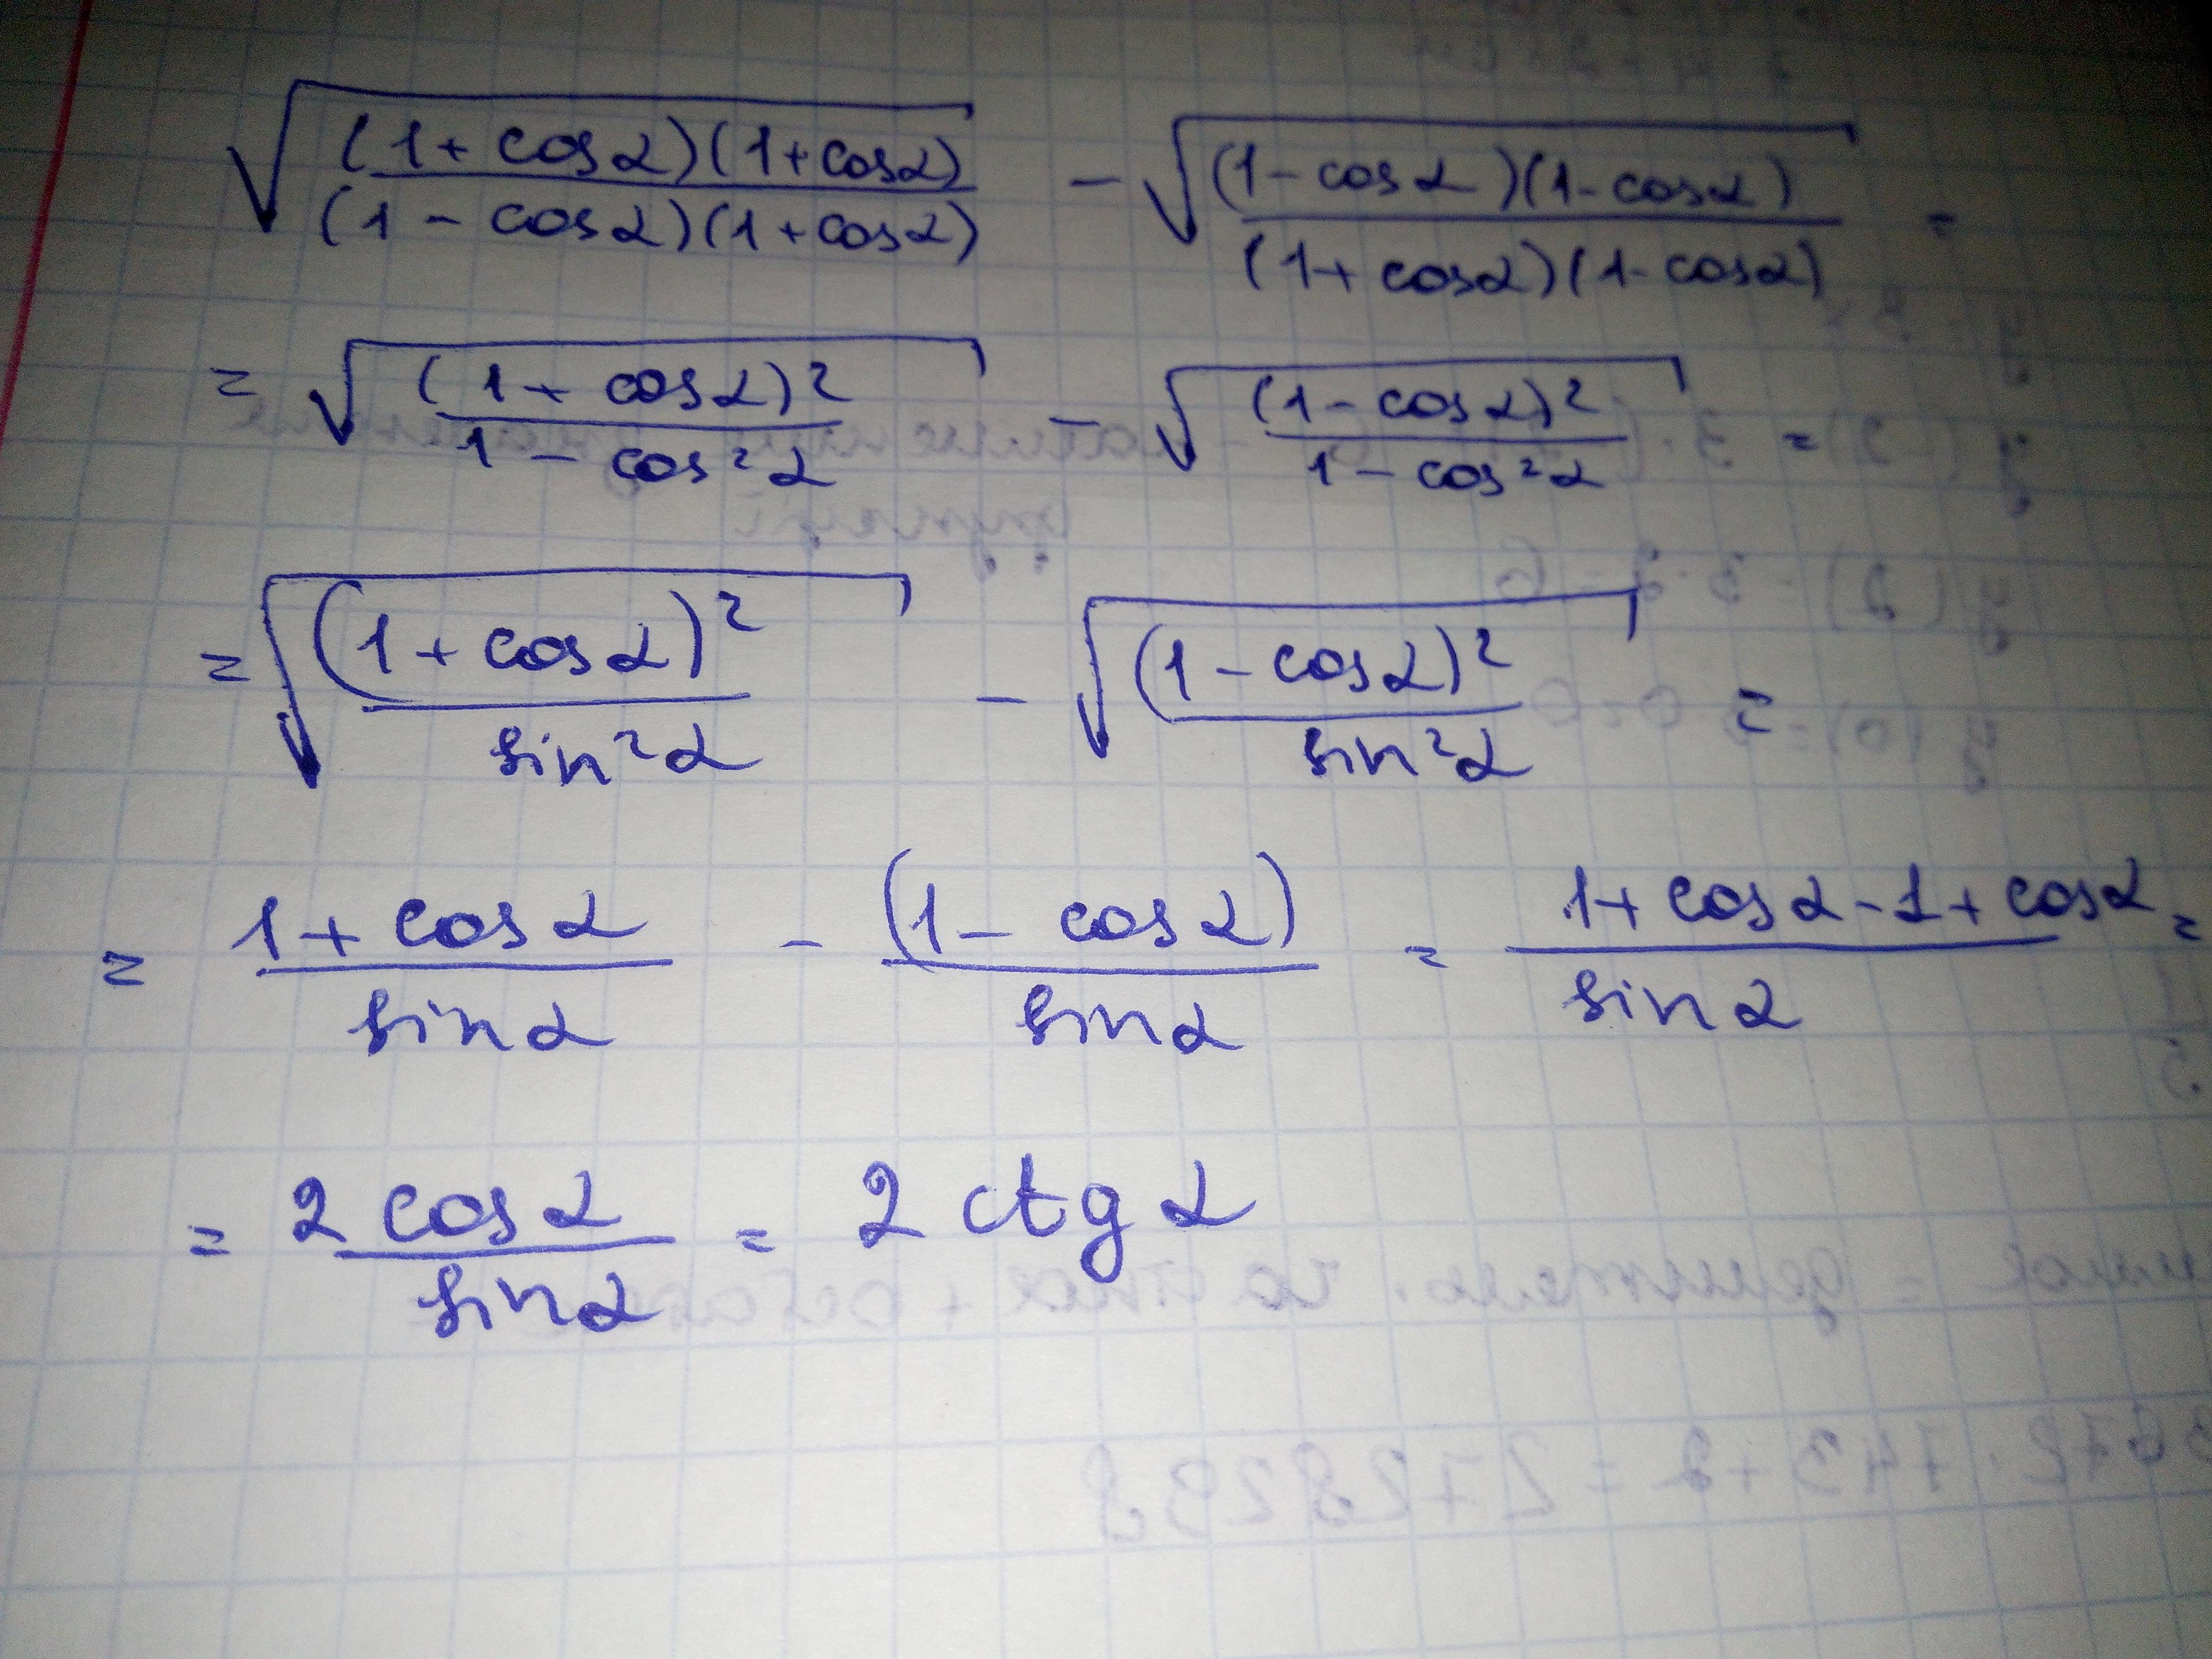 √((1+cosα)(1+cosα)/(1-cosα)(1+cosα)) - √((1-cosα)(1-cosα)/(1+cosα)(1-cosα)) =
= √((1+cosα)²/1-cos²α) - √((1-cosα)²/1-cos²α) =
= √((1+cosα)²/sin²α) - √((1-cosα)²/sin²α) =
= 1+cosα/sinα - (1-cosα)/sinα = 1+cosα-1+cosα/sinα =
= 2cosα/sinα = 2ctgα